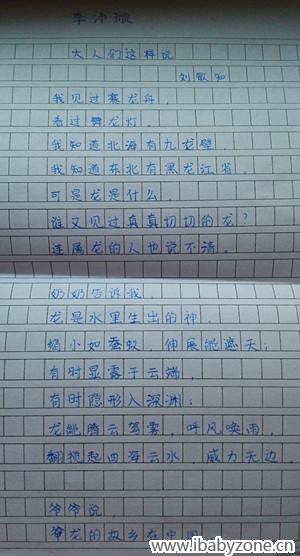 李沛璇
大人们这样说
刘敏知
我见过赛龙舟，
看过舞龙灯。
我知道北海有九龙壁，
我知道东北有黑龙江省。
可是龙是什么，
谁又见过真真切切的龙？
连属龙的人也说不清。
奶奶告诉我，
龙是水里生出的神，
缩小如蚕蚁，伸展能遮天；
有时显露于云端，
有时隐形入深渊；
龙能腾云驾雾，呼风唤雨，
翻搅起四海云水，威力无边。
爷爷说，
龙的故乡在中国
www.ibabyzone.cn